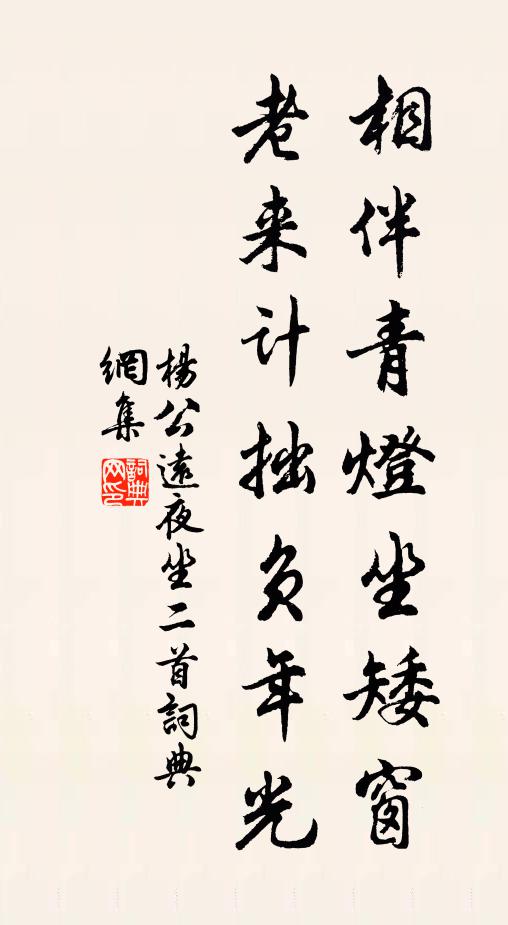 相伴青燈坐矮窗
老来计拙负年光
楊公遠夜坐二首詞典
網集
詞典
网印